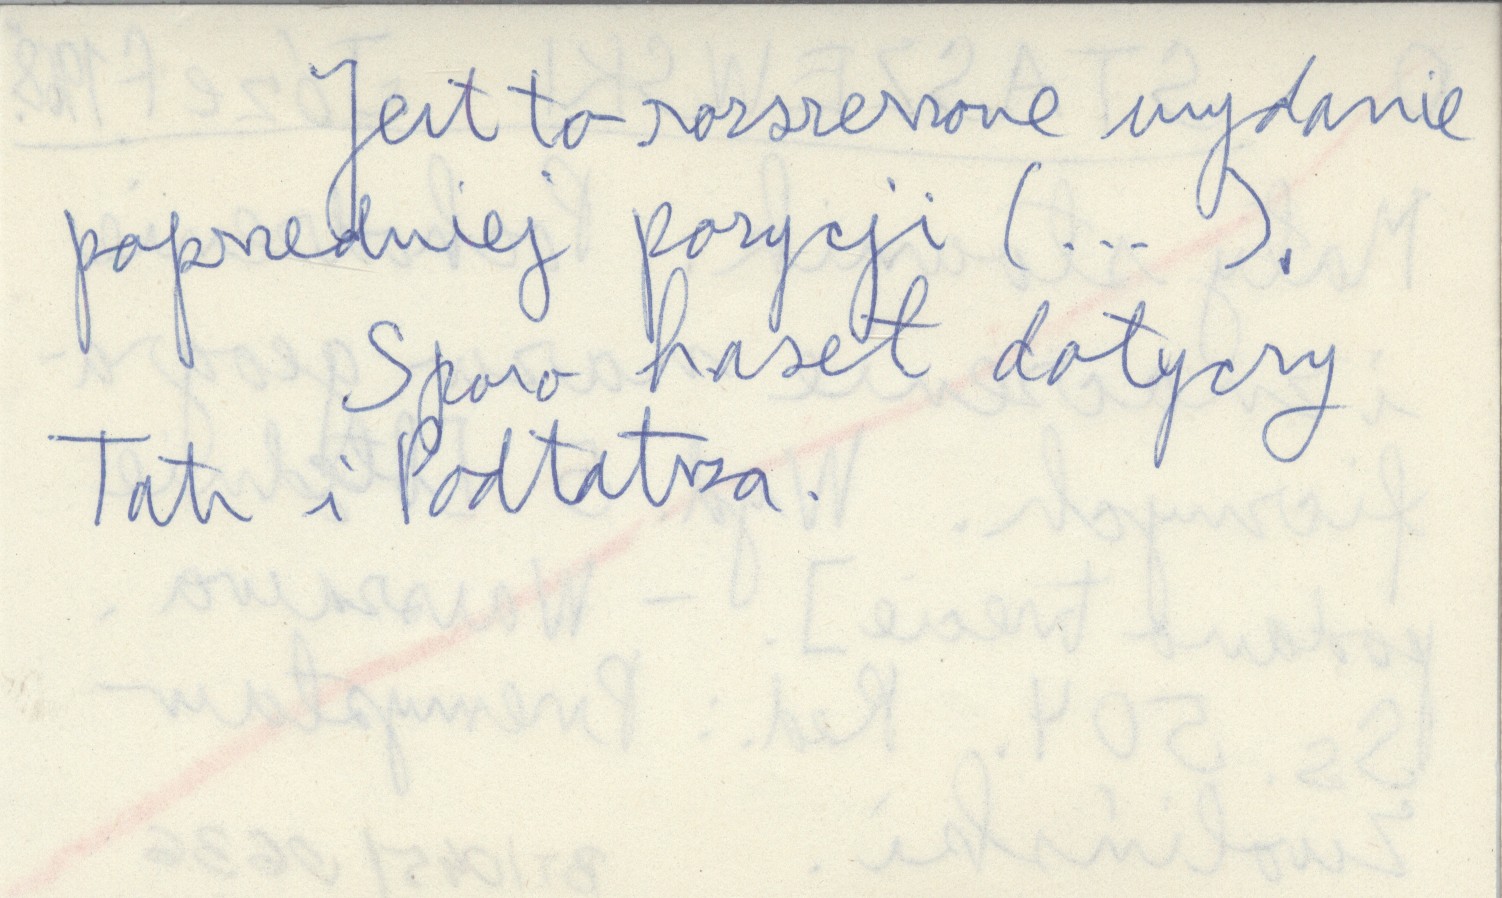 Jest to rozszerzone wydanie
poprzedniej pozycji (...).
Sporo haseł dotyczy
Tatr i Podtatrza.